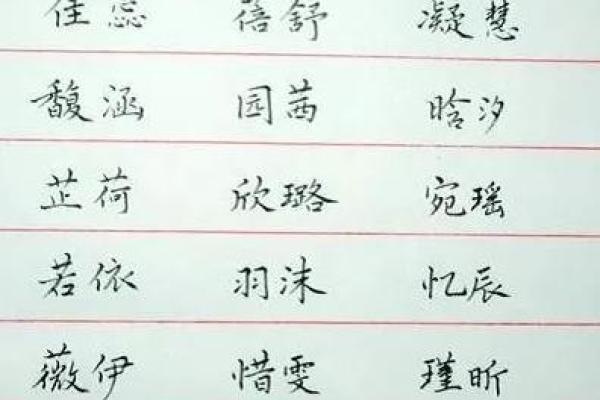 佳蕊 蓓舒 凝慧
馥涵 园茜 晗汐
芷荷 欣璐 宛瑶
若依 羽沫 忆辰
薇伊 惜雯 瑾昕